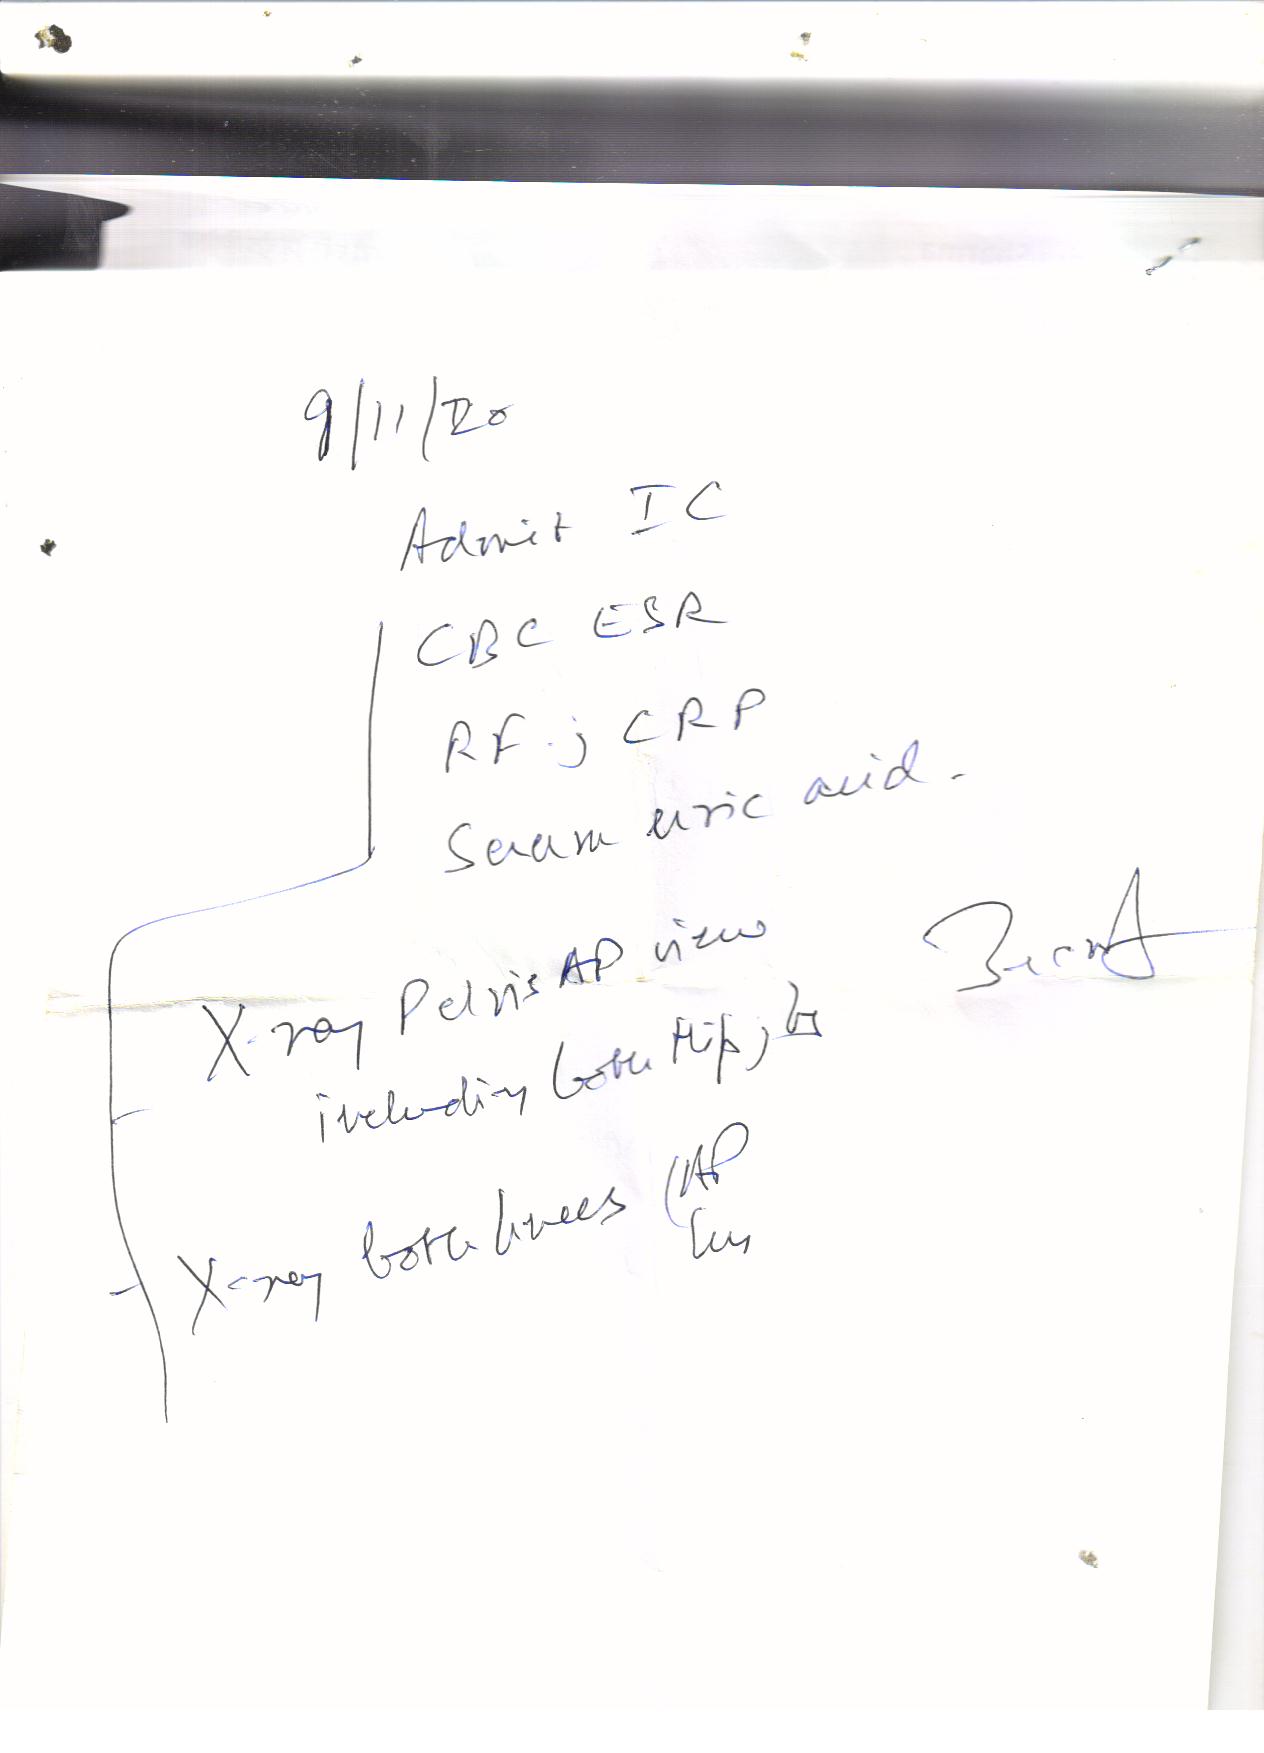 9/11/20
Admit IC
CBC ESR
RF ; CRP
Serum uric acid.
X-ray Pelvis AP view
including both Hip ;
X-ray both knees (AP